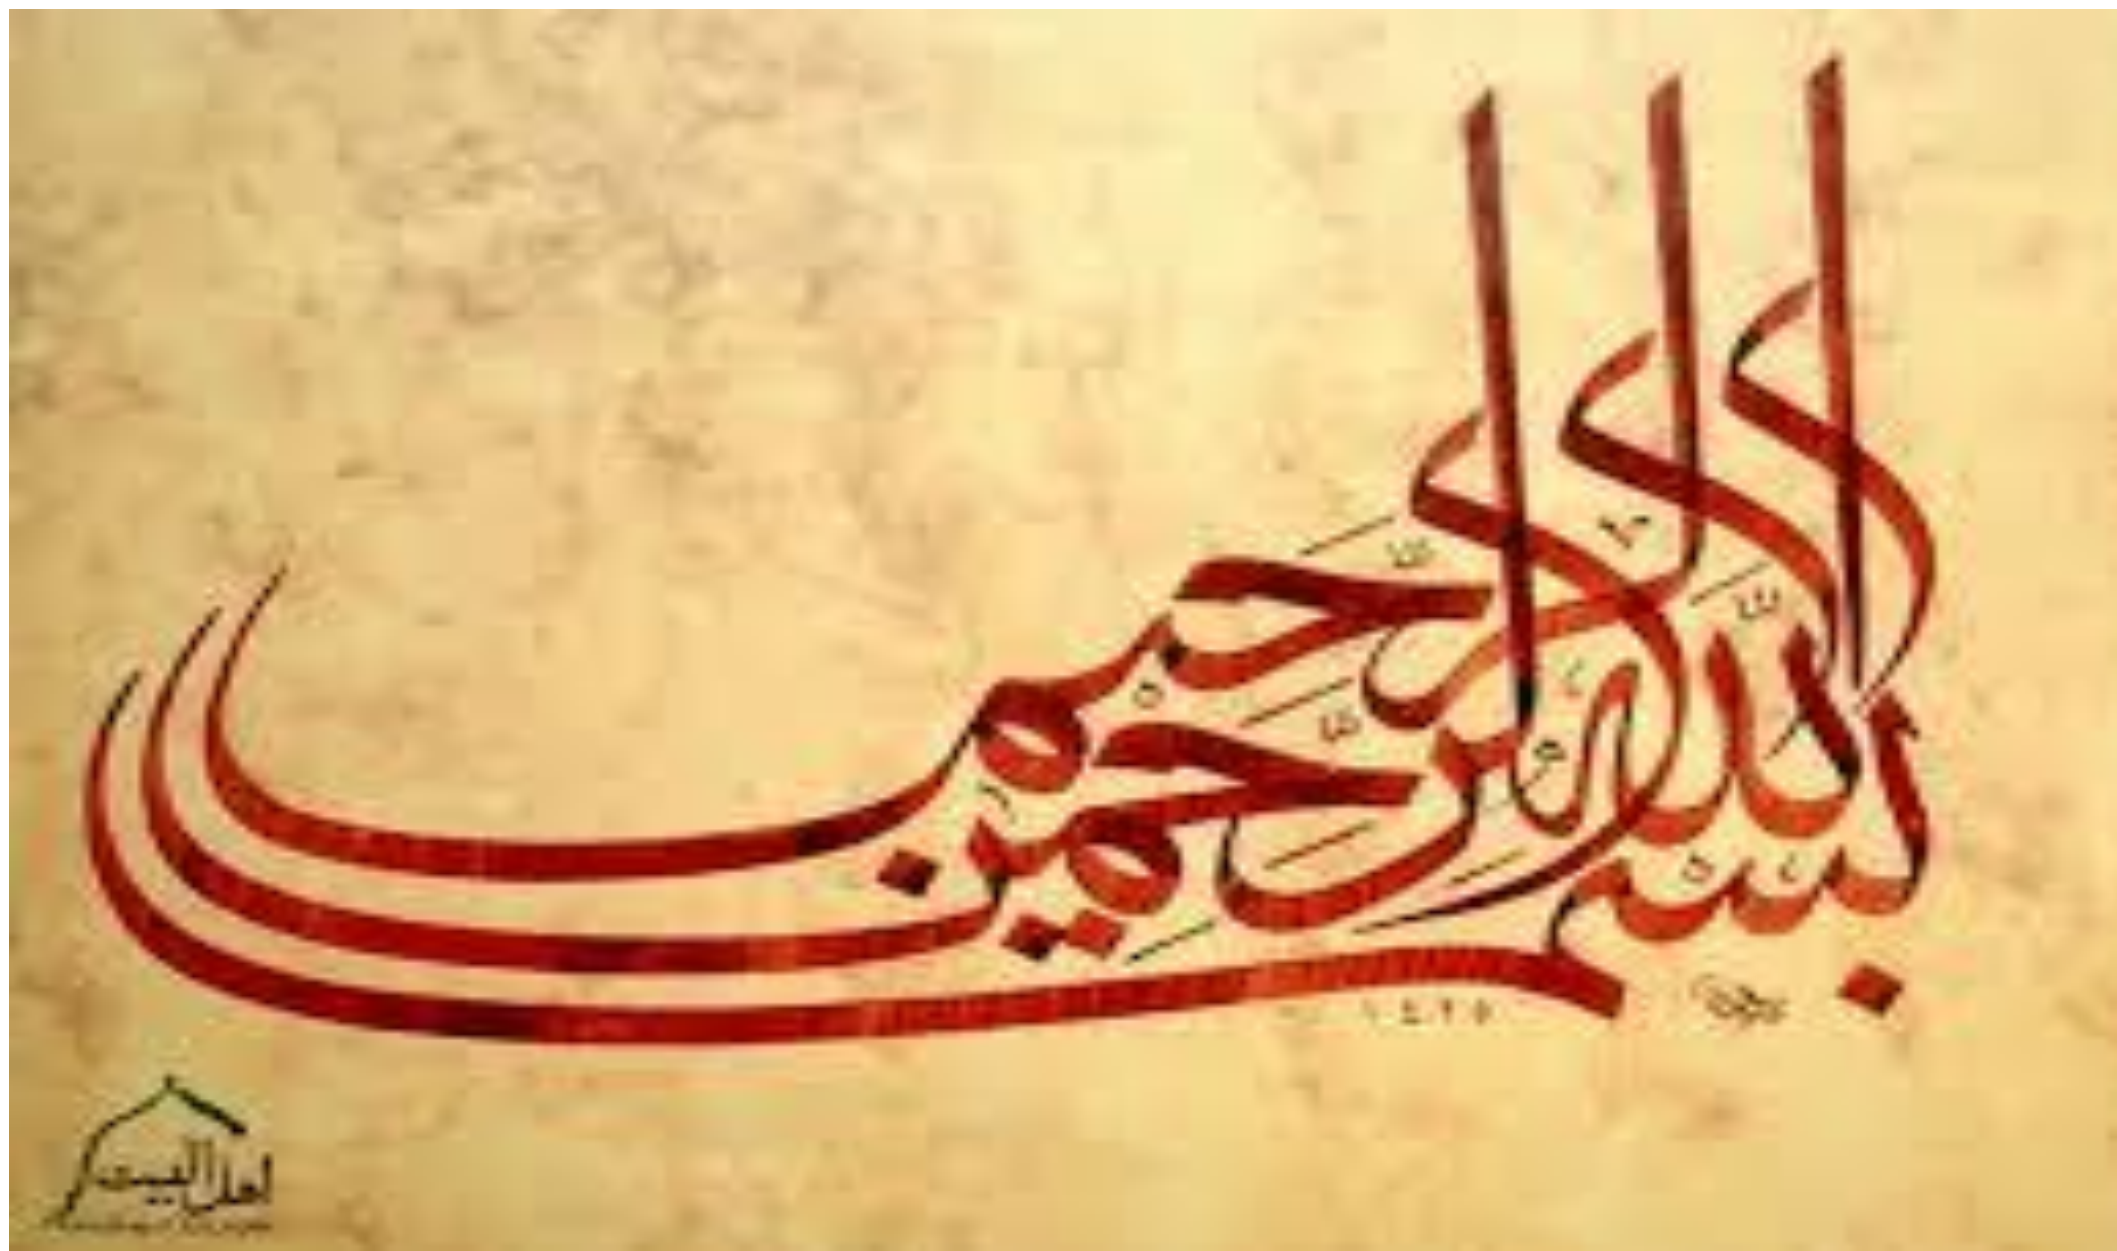 بسم الله الرحمن الرحيم
١٤٢٥
اهل البيت